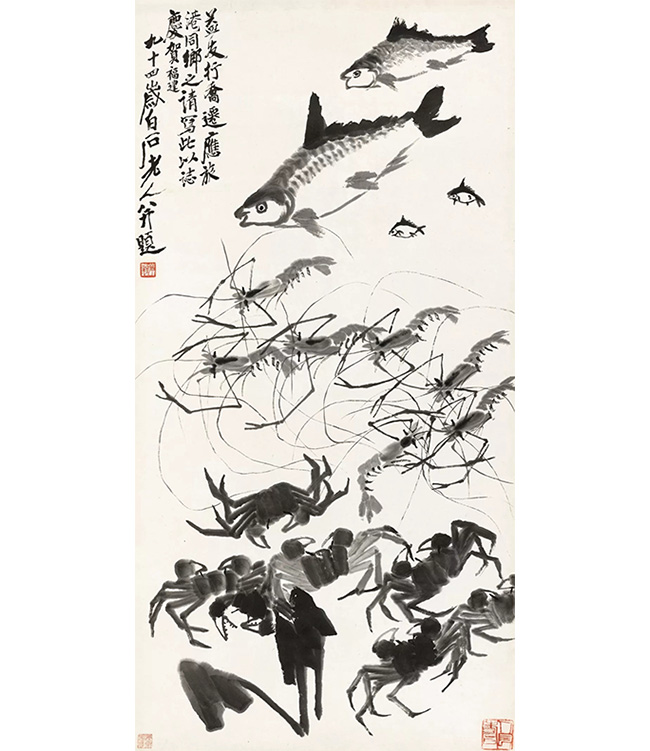 益友行喬遷應旅
港同鄉之請寫此以誌
慶賀福建
九十四歲白石老人并題